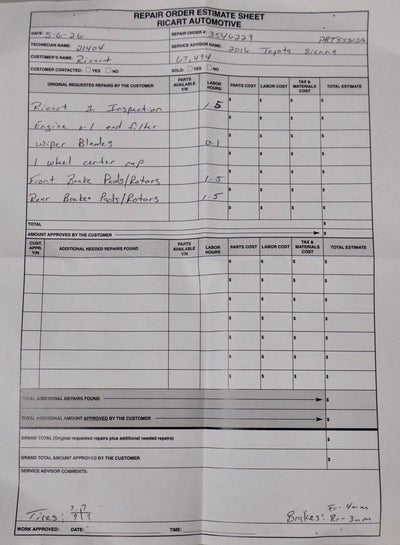 REPAIR ORDER ESTIMATE SHEET
RICART AUTOMOTIVE
DATE: 5-6-26 REPAIR ORDER #: 3546229 PRT55363A
TECHNICIAN NAME: 21404 SERVICE ADVISOR NAME: 2016 Toyota Sienna
CUSTOMER'S NAME: Ricart 67,494
CUSTOMER CONTACTED: YES NO SOLD: YES NO
ORIGINAL REQUESTED REPAIRS BY THE CUSTOMER PARTS AVAILABLE Y/N LABOR HOURS PARTS COST LABOR COST TAX & MATERIALS COST TOTAL ESTIMATE
Ricart 1 Inspection 1.5 $ $ $ $
Engine oil and filter $ $ $ $
Wiper Blades 0.1 $ $ $ $
1 wheel center cap $ $ $ $
Front Brake Pads/Rotors 1.5 $ $ $ $
Rear Brakes Pads/Rotors 1.5 $ $ $ $
TOTAL $
AMOUNT APPROVED BY THE CUSTOMER $
CUST. APPR. Y/N ADDITIONAL NEEDED REPAIRS FOUND PARTS AVAILABLE Y/N LABOR HOURS PARTS COST LABOR COST TAX & MATERIALS COST TOTAL ESTIMATE
$ $ $ $
$ $ $ $
$ $ $ $
$ $ $ $
$ $ $ $
$ $ $ $
$ $ $ $
TOTAL ADDITIONAL REPAIRS FOUND $
TOTAL ADDITIONAL AMOUNT APPROVED BY THE CUSTOMER $
GRAND TOTAL (Original requested repairs plus additional needed repairs) $
GRAND TOTAL AMOUNT APPROVED BY THE CUSTOMER $
SERVICE ADVISOR COMMENTS:
Tires: Brakes: Fr-4mm
Rr-3mm
WORK APPROVED: DATE: TIME: